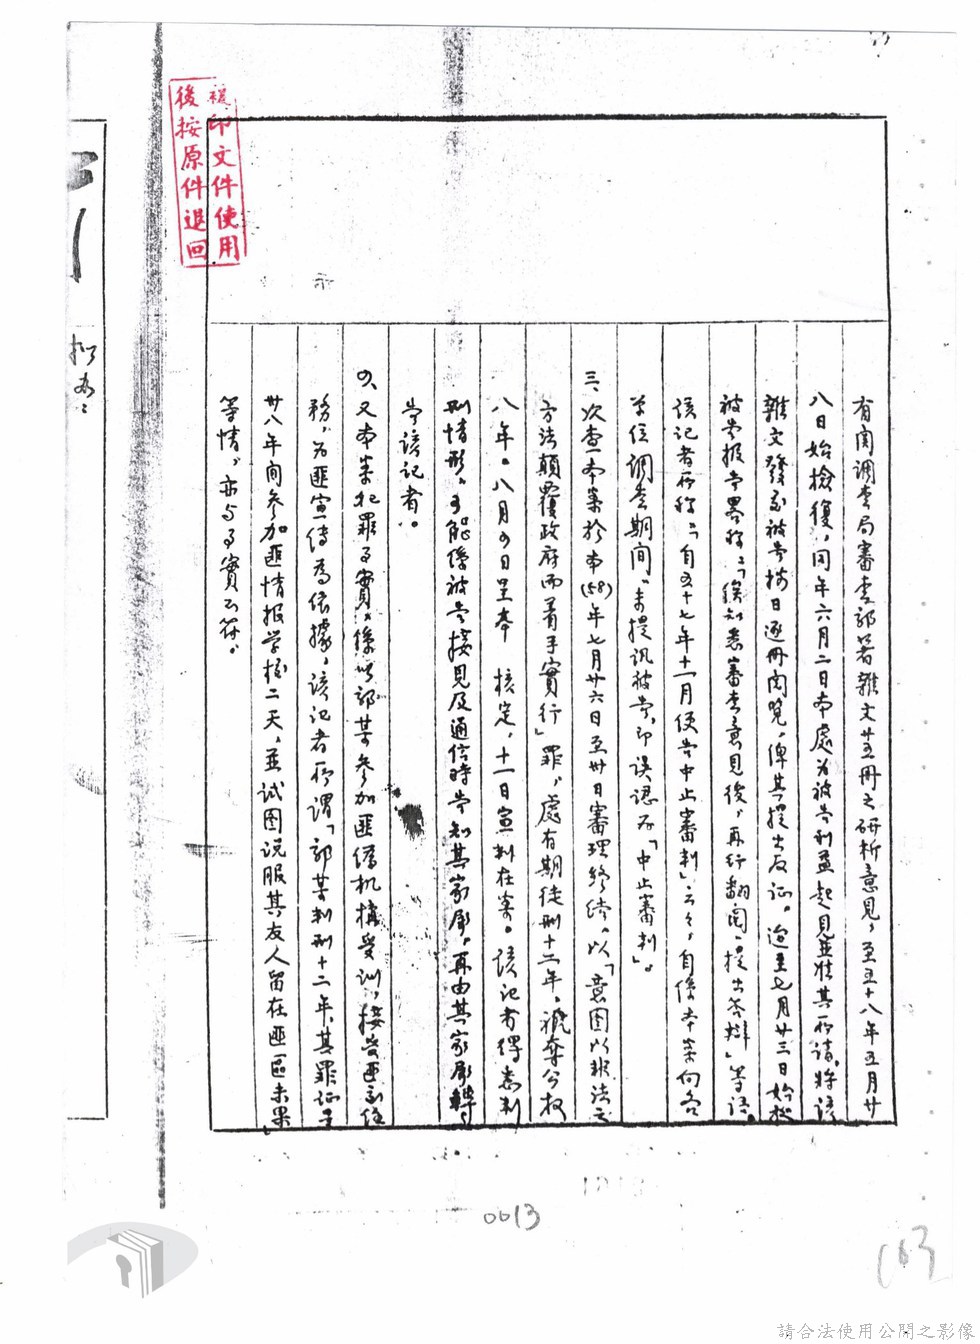 複印文件使用
後按原件退回
有関調查局審查郭著雜文廿五冊之研析意見，至五十八年五月廿
八日始檢復，同年六月二日本處為被告利益起見並准其所請，將該
雜文發交被告按日逐冊閱覽，俾其提出反证。迨至七月廿三日始據
被告报告畧称：「俟知悉審查意見後，再行翻閱，提出答辯」等语。
该记者所称：「自五十七年十一月便告中止審判」云々，自係本案向各
单位調查期间，未提讯被告，即误認为「中止審判」。
三、次查本案於本(58)年七月廿六日至卅日審理終结。以「意图以非法之
方法顛覆政府而着手實行」罪，處有期徒刑十二年，褫奪公权
八年。八月四日呈奉　核定，十一日宣判在案。该记者得悉判
刑情形，可能係被告接見及通信時告知其家属，再由其家属轉
告该记者。
四、又本案犯罪事實，係以郭某参加匪偽机構受训，接受匪
務，为匪宣传為依據，该记者所謂「郭某判刑十二年，其罪证是
卅八年间参加匪情报学校二天，並试图说服其友人留在匪區未果」
等情，亦与事實不符。
拟办：
0013
103
請合法使用公開之影像